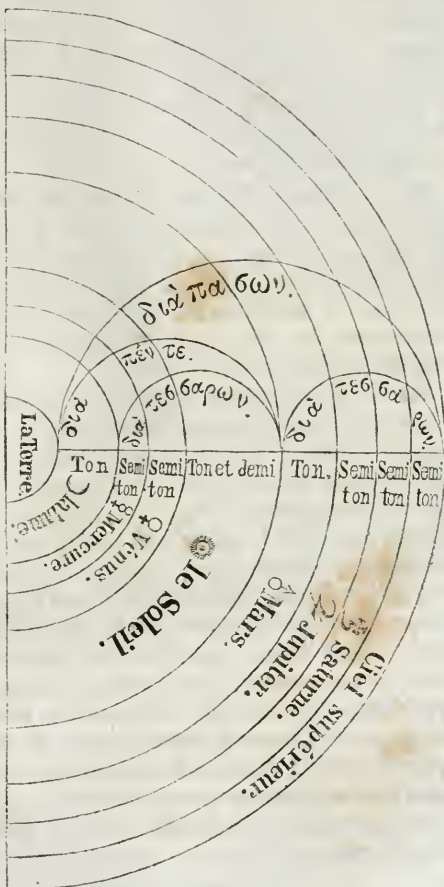 διὰ πα σων.
διὰ πέν τε.
διὰ τεσ σαρων.
διὰ τεσ σά ρων.
La Terre.
Ton
Semi ton
Semi ton
Ton et demi
Ton.
Semi ton
Semi ton
Semi ton
☾ la lune.
☿ Mercure.
♀ Vénus.
le Soleil.
♂ Mars.
♃ Jupiter.
♄ Saturne.
Ciel supérieur.